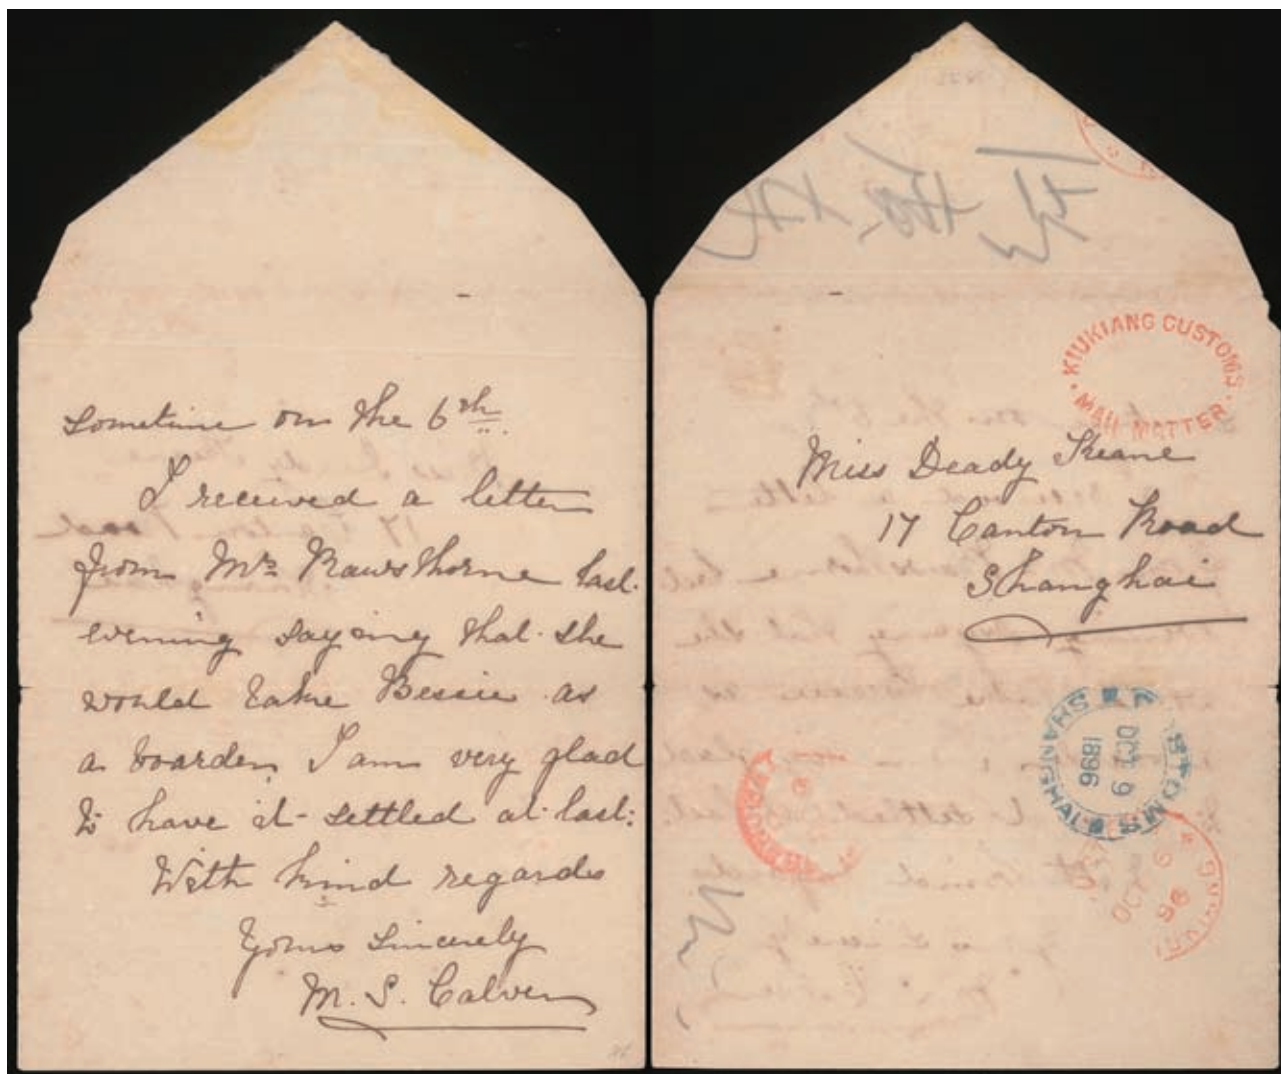 sometime on the 6th.
I received a letter
from Mrs Rawsthorne last
evening saying that she
would take Bessie as
a boarder, I am very glad
to have it settled at last:
With kind regards
Yours Sincerely
M. S. Calver
KIUKIANG CUSTOMS
MAIL MATTER
Miss Deady Keane
17 Canton Road
Shanghai
CUSTOMS
OCT 9
1896
SHANGHAI
OCT
9
96